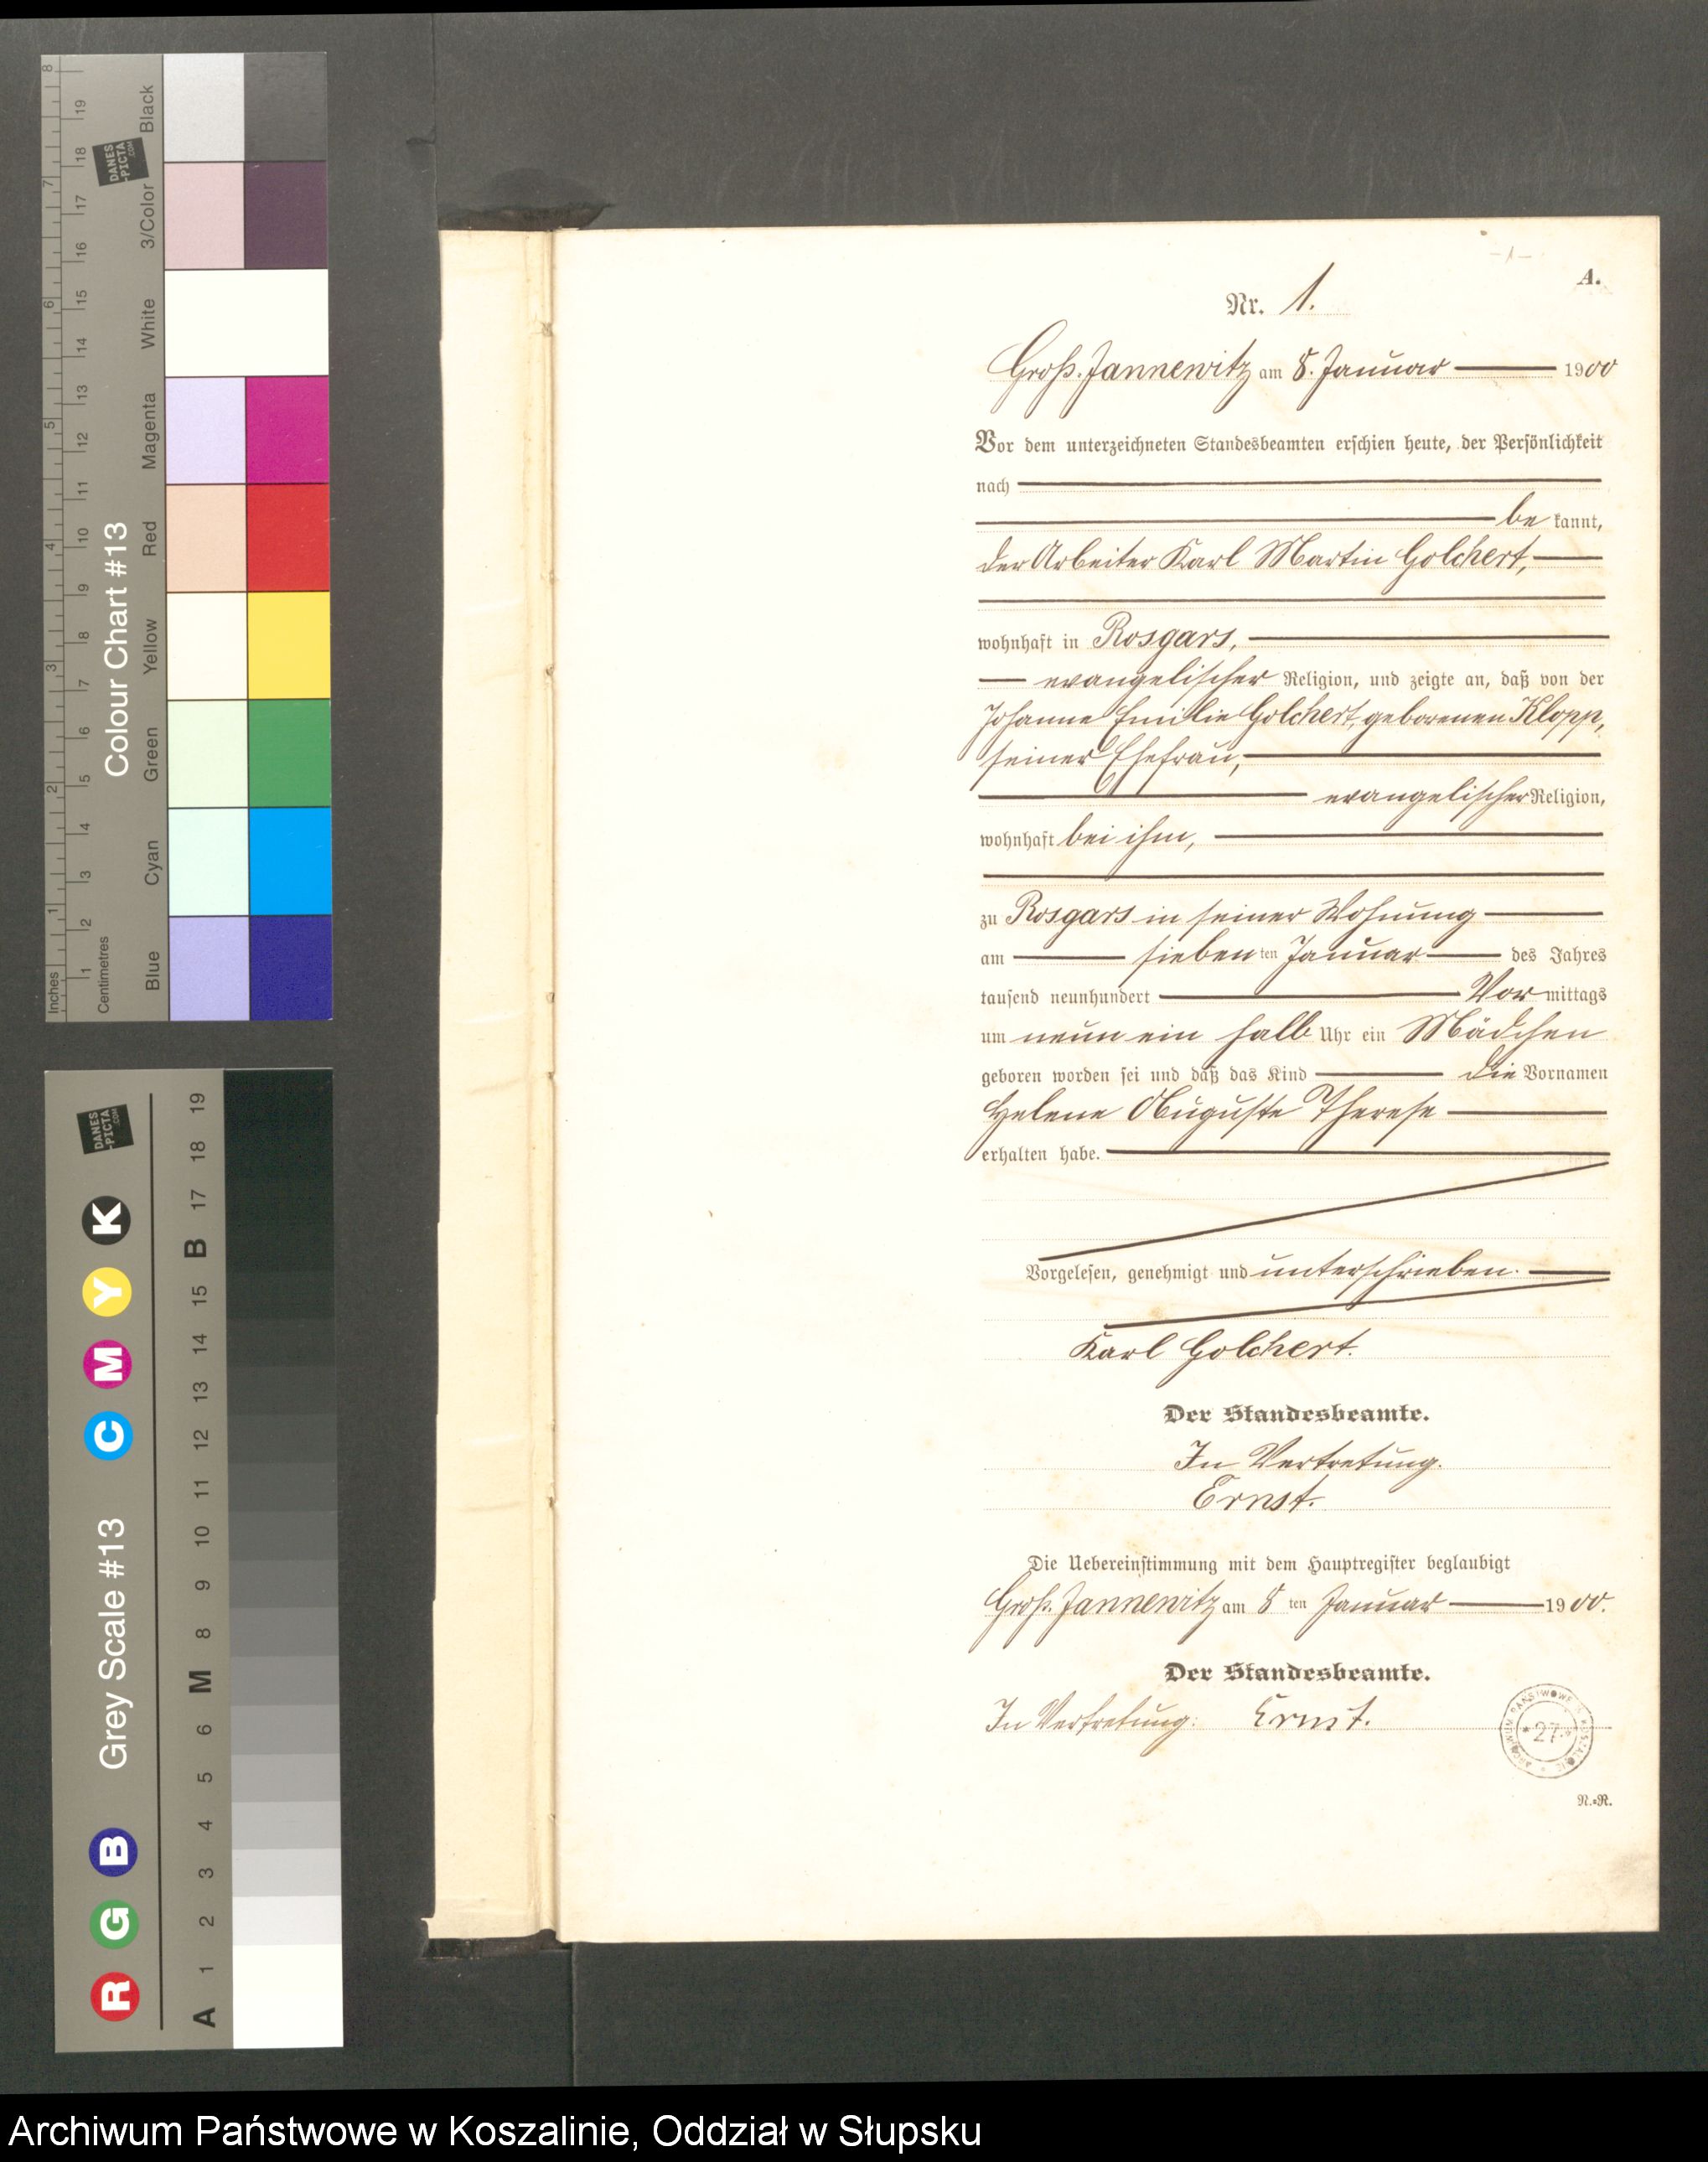 -1-
A.
Nr. 1.
Groß-Jannewitz am 8. Januar 1900
Vor dem unterzeichneten Standesbeamten erschien heute, der Persönlichkeit
nach
be kannt,
der Arbeiter Karl Martin Golchert,
wohnhaft in Rosgars,
evangelischer Religion, und zeigte an, daß von der
Johanne Emilie Golchert, geborenen Klopp,
seiner Ehefrau,
evangelischer Religion,
wohnhaft bei ihm,
zu Rosgars in seiner Wohnung
am siebenten Januar des Jahres
tausend neunhundert Vormittags
um neun ein halb Uhr ein Mädchen
geboren worden sei und daß das Kind die Vornamen
Helene Auguste Therese
erhalten habe.
Vorgelesen, genehmigt und unterschrieben.
Karl Golchert.
Der Standesbeamte.
In Vertretung.
Ernst.
Die Uebereinstimmung mit dem Hauptregister beglaubigt
Groß-Jannewitz am 8 ten Januar 1900.
Der Standesbeamte.
In Vertretung: Ernst.
ARCHIWUM PAŃSTWOWE W KOSZALINIE
* 27 *
N.=R.
Colour Chart #13
Inches 1 2 3 4 5 6 7 8
Centimetres 1 2 3 4 5 6 7 8 9 10 11 12 13 14 15 16 17 18 19
Blue Cyan Green Yellow Red Magenta White 3/Color Black
DANES
-PICTA
.COM
Grey Scale #13
R G B C M Y K
A 1 2 3 4 5 6 M 8 9 10 11 12 13 14 15 B 17 18 19
DANES
-PICTA
.COM
Archiwum Państwowe w Koszalinie, Oddział w Słupsku